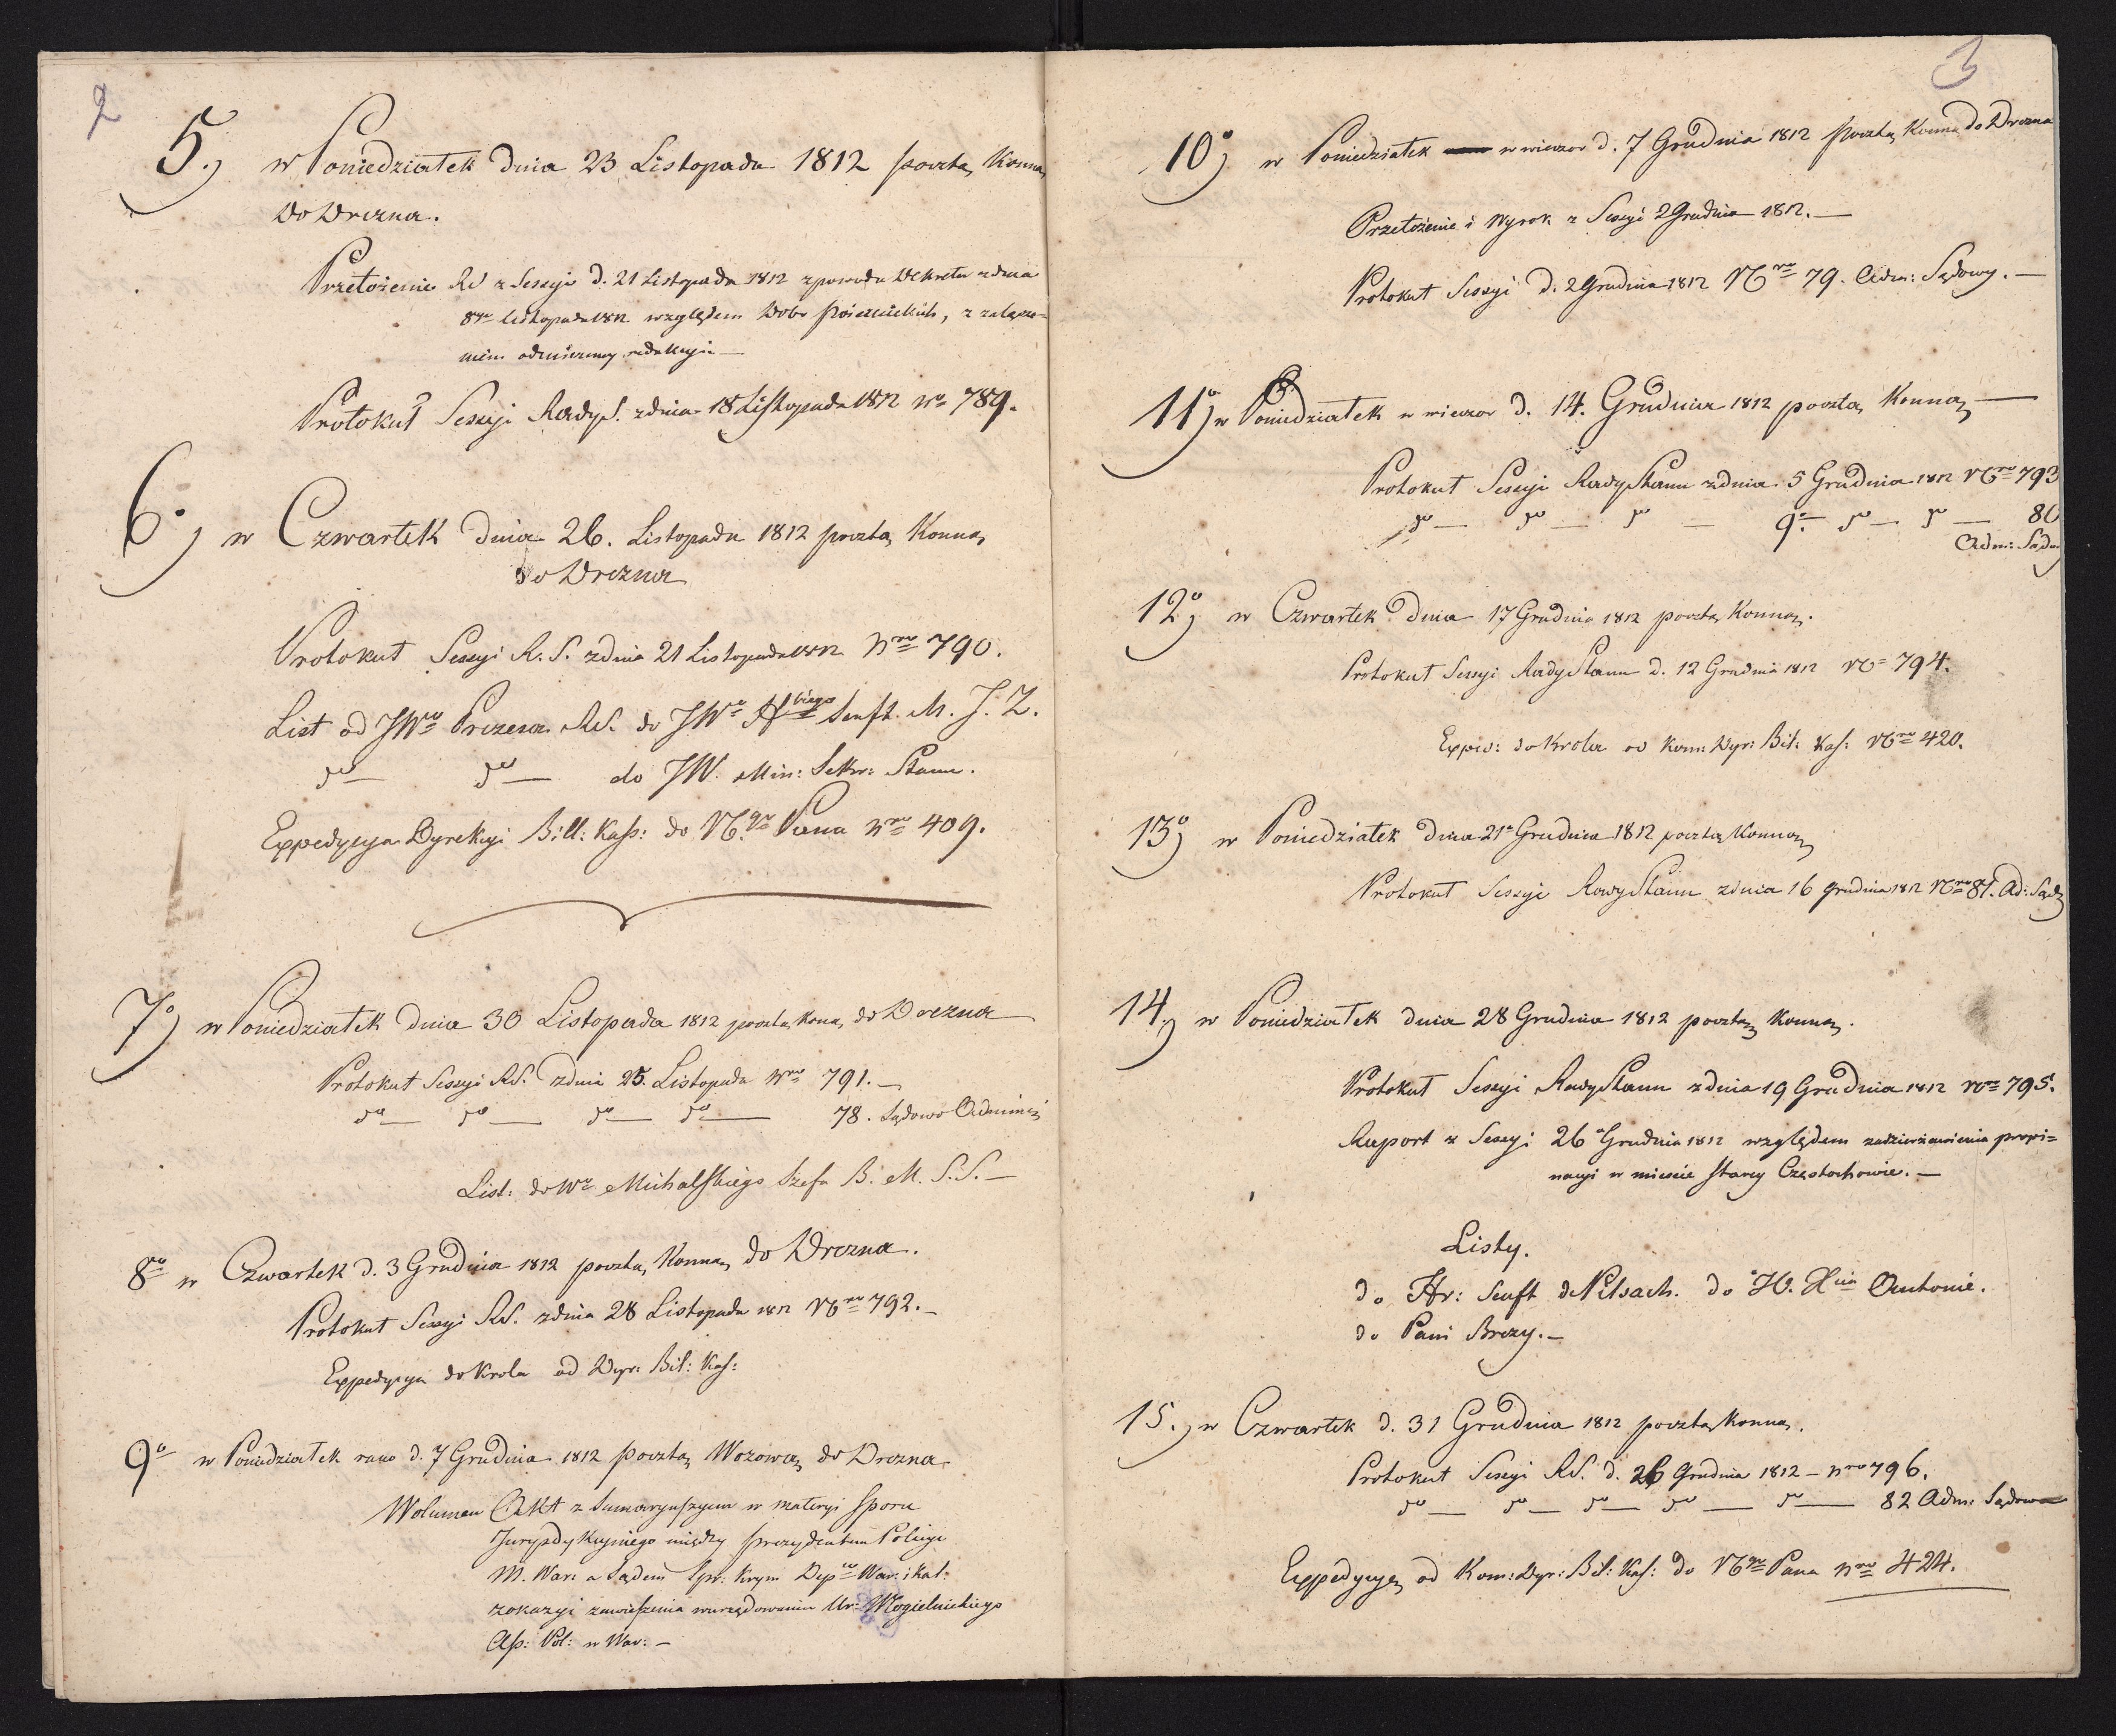 2
5.) w Poniedziałek dnia 23 Listopada 1812 pocztą Konną
do Drezna.
Przełożenie RS z Sessyi d. 21 Listopada 1812 z powodu Dekretu z dnia
8go Listopada 1812 względem Dobr , z załącze-
niem odmienney redakcyi —
Protokuł Sessyi Rady S. z dnia 18 Listopada 1812 No 789.
6o) w Czwartek dnia 26. Listopada 1812 pocztą Konną
do Drezna
Protokuł Sessyi R. S. z dnia 21 Listopada 1812 Nro 790.
List od JWo Prezesa RS. do JWo Hbiego Senft. M. J. Z.
do — do — do JW. Min: Sekr: Stanu.
Exppedycya Dyrekcyi Bill: Kass: do N.go Pana Nro 409.
7o) w Poniedziałek dnia 30 Listopada 1812 pocztą Koną do Drezna
Protokuł Sessyi RS. z dnia 25. Listopada Nro 791. —
do — do — do — do — 78. Sądowo Admin:
List: do Wo Michalskiego Szefa B. M. S. S. —
8vo w Czwartek d. 3 Grudnia 1812 pocztą Konną do Drezna.
Protokuł Sessyi RS. z dnia 28 Listopada 1812 Nro 792. —
Exppedycya do Krola od Dyr: Bil: Kas:
9o w Poniedziałek rano d. 7 Grudnia 1812 pocztą Wozową do Drezna
Wolumen Akt z Sumaryuszem w materyi Sporu
Juryzdykcyinego między Prezydentem Policyi
M. War: a Sądem Spr: Krym Depu War: i Kal:
z okazyi zawieszenia w urzędowaniu Ur: Mogielnickiego
Ass: Pol: w War: —
3
10o) w Poniedziałek w wieczor d. 7 Grudnia 1812 pocztą Konną do Drezna
Przełożenie i Wyrok z Sessyi 2 Grudnia 1812. —
Protokuł Sessyi d. 2 Grudnia 1812 Nro 79. Adm: Sądowy. —
11o) w Poniedziałek w wieczor d. 14. Grudnia 1812 pocztą Konną —
Protokuł Sessyi Rady Stanu z dnia 5 Grudnia 1812 Nro 793
do — do — do — 9o. do — do — 80
Adm: Sądo
12o) w Czwartek dnia 17 Grudnia 1812 pocztą Konną.
Protokuł Sessyi Rady Stanu d. 12 Grudnia 1812 No 794.
Exped: do Krola od Kom: Dyr: Bil: Kas: Nro 420.
13o) w Poniedziałek dnia 21o Grudnia 1812 pocztą Konną
Protokuł Sessyi Rady Stanu z dnia 16 Grudnia 1812 Nro 81. Ad: Sądz
14.) w Poniedziałek dnia 28 Grudnia 1812 pocztą Konną.
Protokuł Sessyi Rady Stanu z dnia 19 Grudnia 1812 Nro 795.
Raport z Sessyi 26o Grudnia 1812 względem zadzierżawienia propi=
nacyi w mieście starey Częstochowie. —
Listy.
do Hr: Senft de Pilsach. do Antonie.
do Pani Brezy. —
15.) w Czwartek d. 31 Grudnia 1812 pocztą Konną.
Protokuł Sessyi RS. d. 26 Grudnia 1812 — Nro 796.
do — do — do — do — do — 82 Adm: Sądowo
Exppedycyą od Kom: Dyr: Bil: Kas: do Ngo Pana Nro 424.